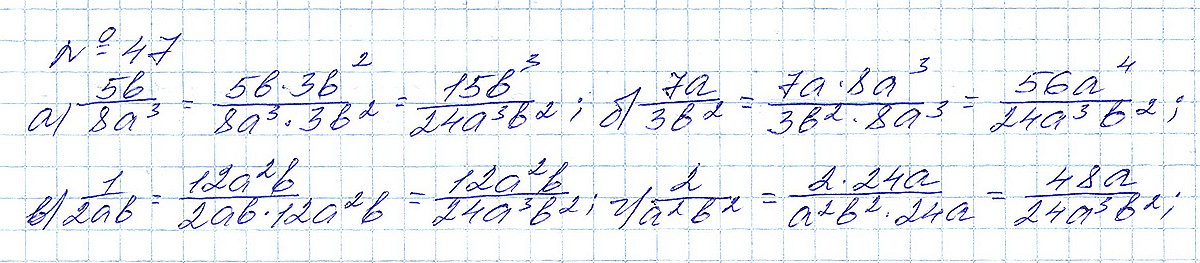 № 47
а) 5b/8a³ = 5b·3b²/8a³·3b² = 15b³/24a³b²; б) 7a/3b² = 7a·8a³/3b²·8a³ = 56a⁴/24a³b²;
в) 1/2ab = 12a²b/2ab·12a²b = 12a²b/24a³b²; г) 2/a²b² = 2·24a/a²b²·24a = 48a/24a³b²;